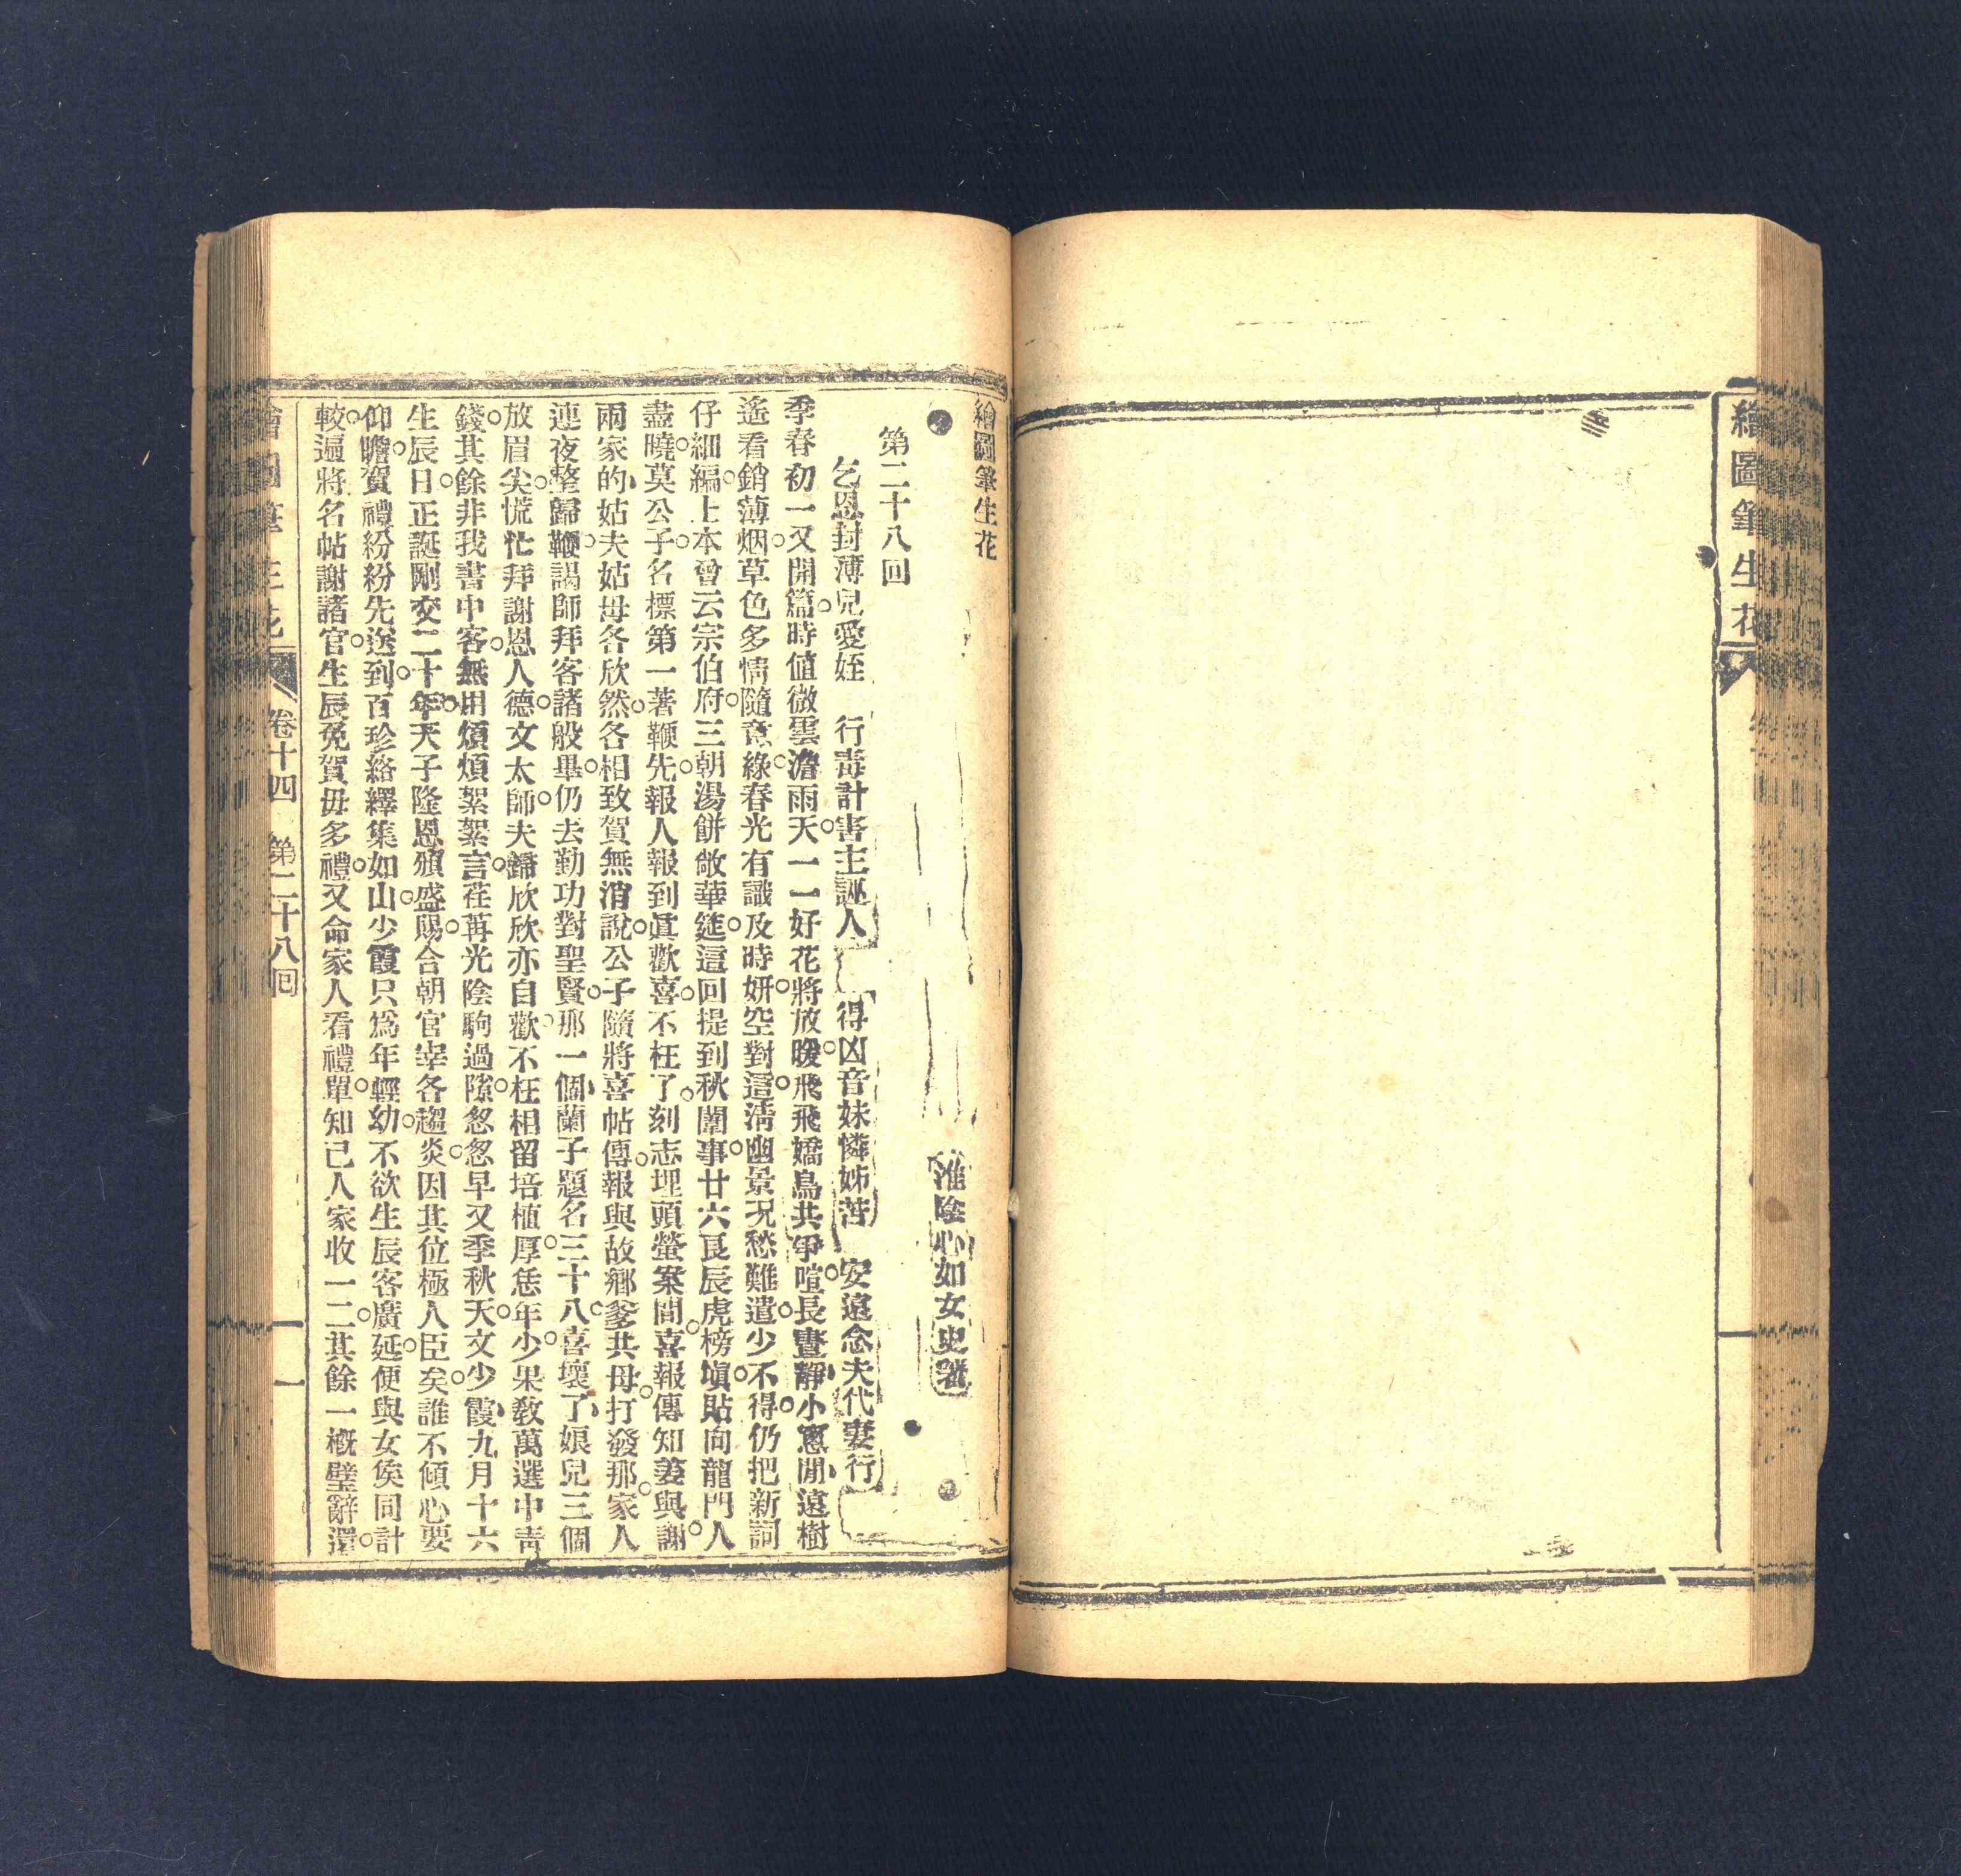 繪圖筆生花
繪圖筆生花
淮陰心如女史著
第二十八回
乞恩封薄兒愛姪 行毒計害主誣人 得凶音妹憐姊苦 安遠念夫代妻行
季春初一又開篇時値微雲澹雨天一一好花將放暖飛飛嬌鳥共爭喧長晝靜小窻閒遠樹
遙看銷薄烟草色多情隨意綠春光有識及時妍空對這淸幽景况愁難遣少不得仍把新詞
仔細編上本曾云宗伯府三朝湯餅敞華筵這回提到秋闈事廿六良辰虎榜塡貼向龍門人
盡曉莫公子名標第一著鞭先報人報到眞歡喜不枉了刻志埋頭螢案間喜報傳知姜與謝
兩家的姑夫姑母各欣然各相致賀無消說公子隨將喜帖傳報與故鄉爹共母打發那家人
連夜整歸鞭謁師拜客諸般畢仍去勤功對聖賢那一個蘭子題名三十八喜壞了娘兒三個
放眉尖慌忙拜謝恩人德文太師夫歸欣欣亦自歡不枉相留培植厚恁年少果敎萬選中靑
錢其餘非我書中客無用煩煩絮絮言荏苒光陰駒過隙怱怱早又季秋天文少霞九月十六
生辰日正誕剛交二十年天子隆恩頒盛賜合朝官宰各趨炎因其位極人臣矣誰不傾心要
仰瞻賀禮紛紛先送到百珍絡繹集如山少霞只爲年輕幼不欲生辰客廣延便與女侯同計
較遍將名帖謝諸官生辰免賀毋多禮又命家人看禮單知己人家收一二其餘一槪璧辭還
繪圖筆生花 卷十四 第二十八回 一